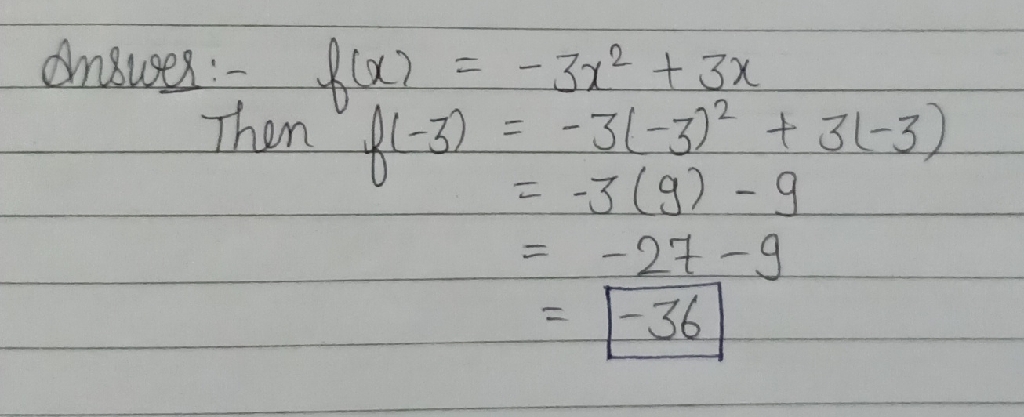 Answer:- f(x) = -3x² + 3x
Then f(-3) = -3(-3)² + 3(-3)
= -3(9) - 9
= -27 - 9
= -36